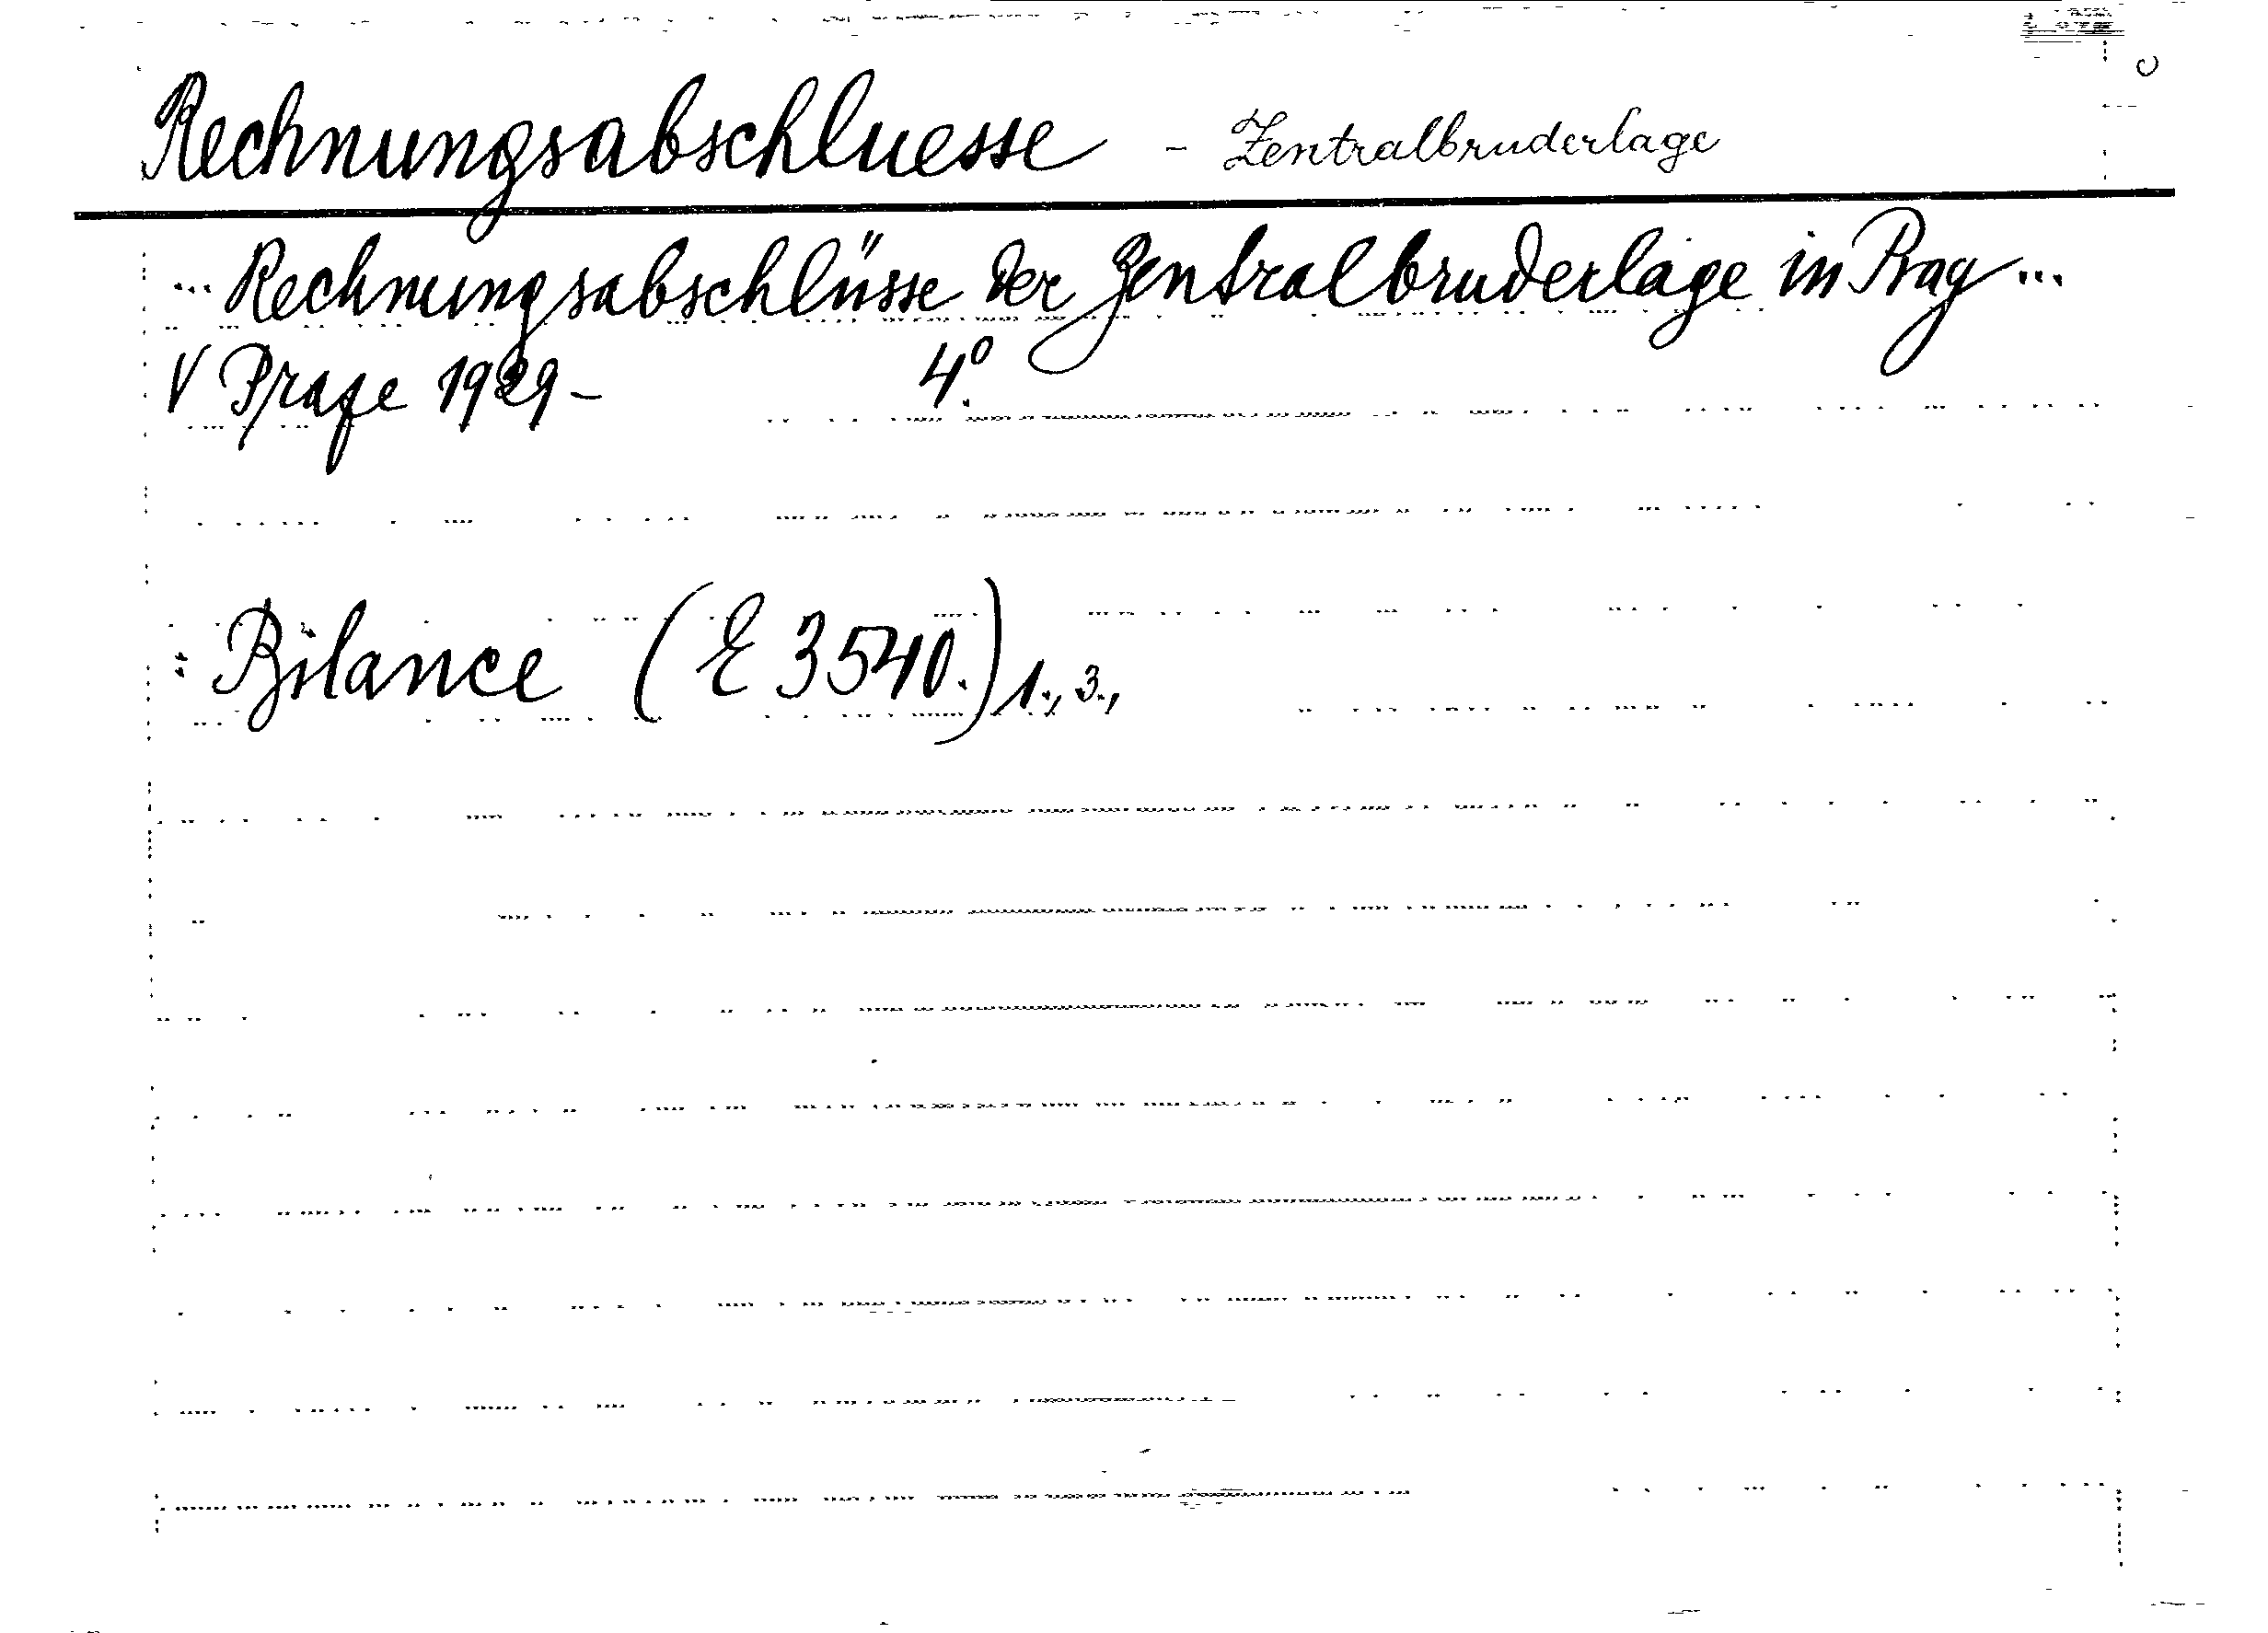 Rechnungsabschluesse - Zentralbruderlage
... Rechnungsabschlüsse der Zentralbruderlage in Prag ...
V Praze 1929 - 4°.
: Bilance (E 3540.) 1., 3.,